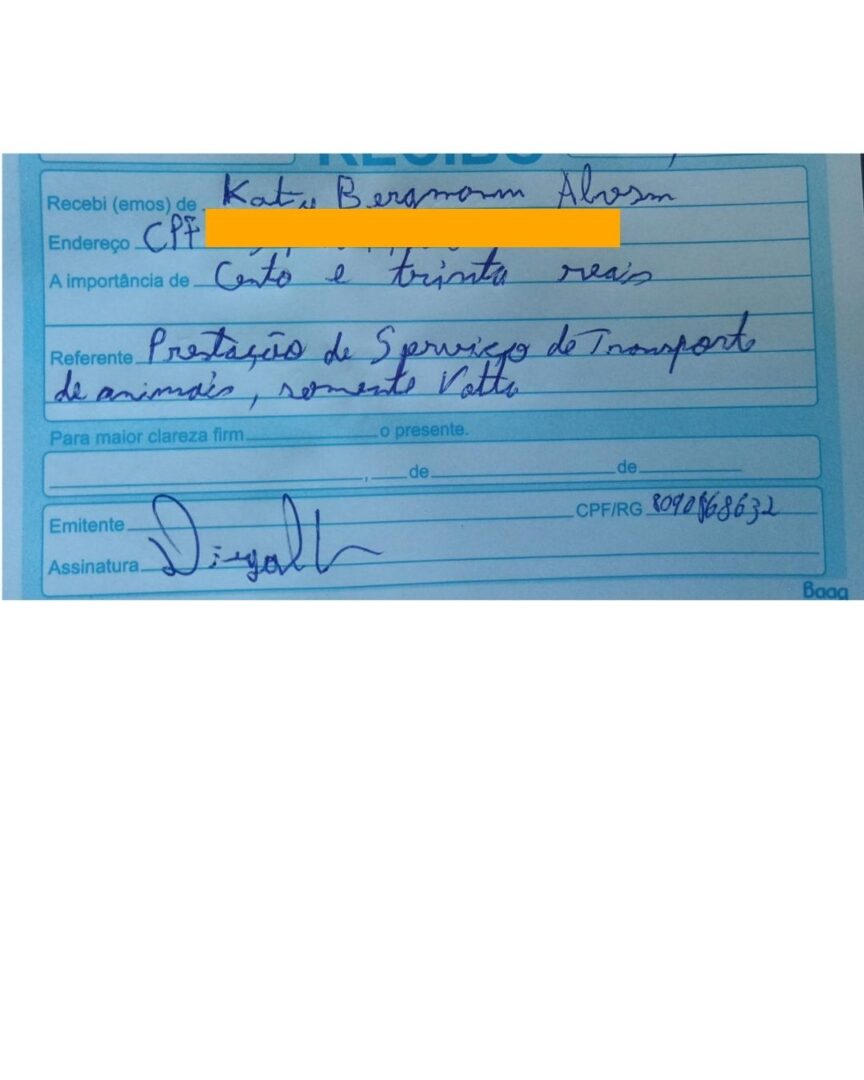 RECIBO
Recebi (emos) de Katy Bergmann
Endereço CPF
A importância de Cento e trinta reais
Referente Prestação de Serviço de Transporte
de animais, somente Volta
Para maior clareza firm o presente.
, de de
Emitente CPF/RG
Assinatura
Baag